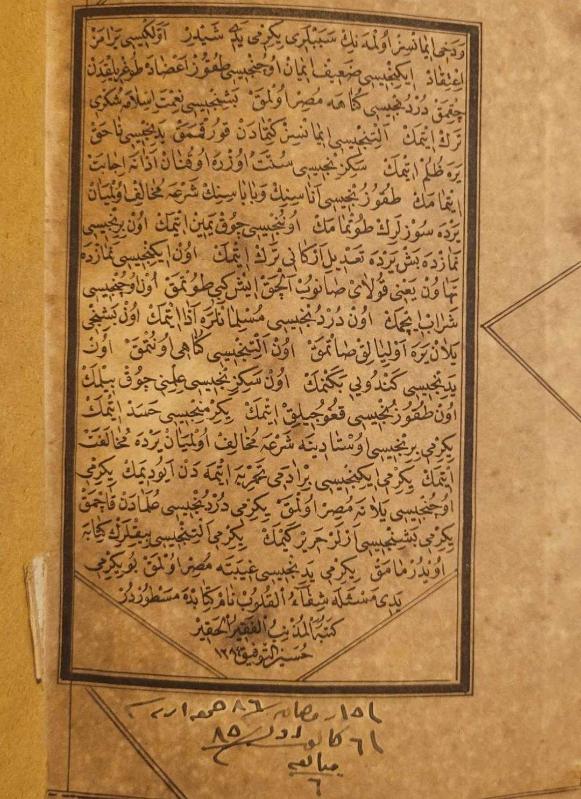 ودخی ایمانسز اولمه نك سببلری یکرمی یدی شیدر اولکیسی یرامز
اعتقاد ایکنجیسی ضعیف ایمان اوچنجیسی طقوز اعضاء طوغریلقدن
چقمق دردنجیسی کناهه مصر اولمق بشنجیسی نعمت اسلامه شکری
ترك ایتمك آلتنجیسی ایمانسز کتمادن قورقمق یدنجیسی ناحق
یره ظلم ایتمك سکزنجیسی سنت اوزره اوقنان اذانه اجابت
ایتمامك طقوزنجیسی آناسنك وباباسنك شرعه مخالف اولمیان
یرده سوزلرك طوتمامك اوننجیسی چوق یمین ایتمك اون برنجیسی
نمازده بش یرده تعدیل ارکانی ترك ایتمك اون ایکنجیسی نمازده
تهاون یعنی قولای صانوب آلچق ایش کبی طوتمق اون اوچنجیسی
شراب ایچمك اون دردنجیسی مسلمانلره اذا ایتمك اون بشنجی
یلان یره اولیالق صاتمق اون آلتنجیسی کناهی اونتمق اون
یدنجیسی کندویی بکنمك اون سکزنجیسی علمنی چوق بیلمك
اون طقوزنجیسی قوغوجیلق ایتمك یکرمنجیسی حسد ایتمك
یکرمی برنجیسی اوستادینه شرعه مخالف اولمیان یرده مخالفت
ایتمك یکرمی ایکنجیسی بر آدمی تجربه ایتمه دن ایو دیمك یکرمی
اوچنجیسی یلانه مصر اولمق یکرمی دردنجیسی علمادن قاچمق
یکرمی بشنجیسی ارلر حریر کیمك یکرمی آلتنجیسی بیقلرك
اویدرمامق یکرمی یدنجیسی غیبته مصر اولمق بو یکرمی
یدی مسئله شفاء القلوب نام کتابده مسطوردر
کتبه المذنب الفقیر الحقیر
حسین التوفیق ١٢٨٤
١٥ رمضان ٨٦
٦ کانون اول ٨٥
٦